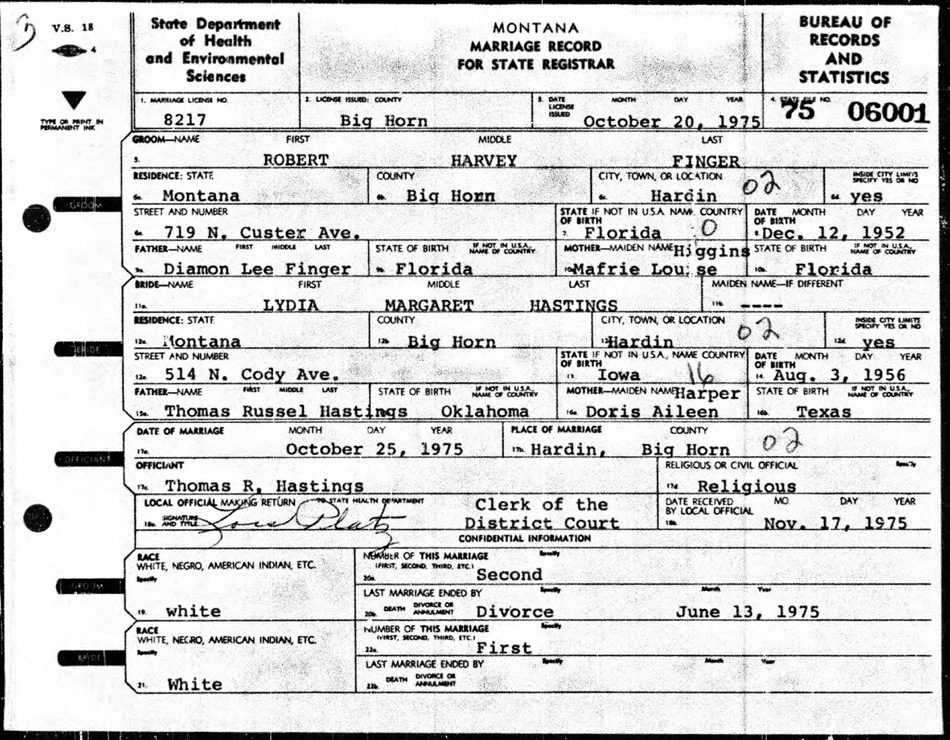 V.S. 18
4
TYPE OR PRINT IN PERMANENT INK
State Department of Health and Environmental Sciences
MONTANA
MARRIAGE RECORD
FOR STATE REGISTRAR
BUREAU OF RECORDS AND STATISTICS
1. MARRIAGE LICENSE NO. 8217
2. LICENSE ISSUED: COUNTY Big Horn
3. DATE LICENSE ISSUED MONTH DAY YEAR October 20, 1975
4. STATE FILE NO. 75 06001
GROOM
GROOM—NAME FIRST MIDDLE LAST
5. ROBERT HARVEY FINGER
RESIDENCE: STATE COUNTY CITY, TOWN, OR LOCATION INSIDE CITY LIMITS SPECIFY YES OR NO
6a. Montana 6b. Big Horn 6c. Hardin 02 6d. yes
STREET AND NUMBER STATE IF NOT IN U.S.A. NAME COUNTRY OF BIRTH DATE OF BIRTH MONTH DAY YEAR
6e. 719 N. Custer Ave. 7. Florida 0 8. Dec. 12, 1952
FATHER—NAME FIRST MIDDLE LAST STATE OF BIRTH IF NOT IN U.S.A. NAME OF COUNTRY MOTHER—MAIDEN NAME Higgins STATE OF BIRTH IF NOT IN U.S.A. NAME OF COUNTRY
9a. Diamon Lee Finger 9b. Florida 10a. Mafrie Louise 10b. Florida
BRIDE—NAME FIRST MIDDLE LAST MAIDEN NAME—IF DIFFERENT
11a. LYDIA MARGARET HASTINGS 11b. ----
BRIDE
RESIDENCE: STATE COUNTY CITY, TOWN, OR LOCATION 02 INSIDE CITY LIMITS SPECIFY YES OR NO
12a. Montana 12b. Big Horn 12c. Hardin 12d. yes
STREET AND NUMBER STATE IF NOT IN U.S.A., NAME COUNTRY OF BIRTH DATE OF BIRTH MONTH DAY YEAR
12e. 514 N. Cody Ave. 13. Iowa 16 14. Aug. 3, 1956
FATHER—NAME FIRST MIDDLE LAST STATE OF BIRTH IF NOT IN U.S.A., NAME OF COUNTRY MOTHER—MAIDEN NAME Harper STATE OF BIRTH IF NOT IN U.S.A., NAME OF COUNTRY
15a. Thomas Russel Hastings Oklahoma 16a. Doris Aileen 16b. Texas
DATE OF MARRIAGE MONTH DAY YEAR PLACE OF MARRIAGE COUNTY
17a. October 25, 1975 17b. Hardin, Big Horn 02
OFFICIANT
OFFICIANT RELIGIOUS OR CIVIL OFFICIAL Specify
17c. Thomas R. Hastings 17d. Religious
LOCAL OFFICIAL MAKING RETURN TO STATE HEALTH DEPARTMENT Clerk of the DATE RECEIVED BY LOCAL OFFICIAL MO. DAY YEAR
18a. SIGNATURE AND TITLE District Court 18b. Nov. 17, 1975
CONFIDENTIAL INFORMATION
GROOM
RACE WHITE, NEGRO, AMERICAN INDIAN, ETC. Specify
19. white
NUMBER OF THIS MARRIAGE (FIRST, SECOND, THIRD, ETC.) Specify
20a. Second
LAST MARRIAGE ENDED BY Specify Month Year
20b. DEATH DIVORCE OR ANNULMENT Divorce June 13, 1975
BRIDE
RACE WHITE, NEGRO, AMERICAN INDIAN, ETC. Specify
21. White
NUMBER OF THIS MARRIAGE (FIRST, SECOND, THIRD, ETC.) Specify
22a. First
LAST MARRIAGE ENDED BY Specify Month Year
22b. DEATH DIVORCE OR ANNULMENT